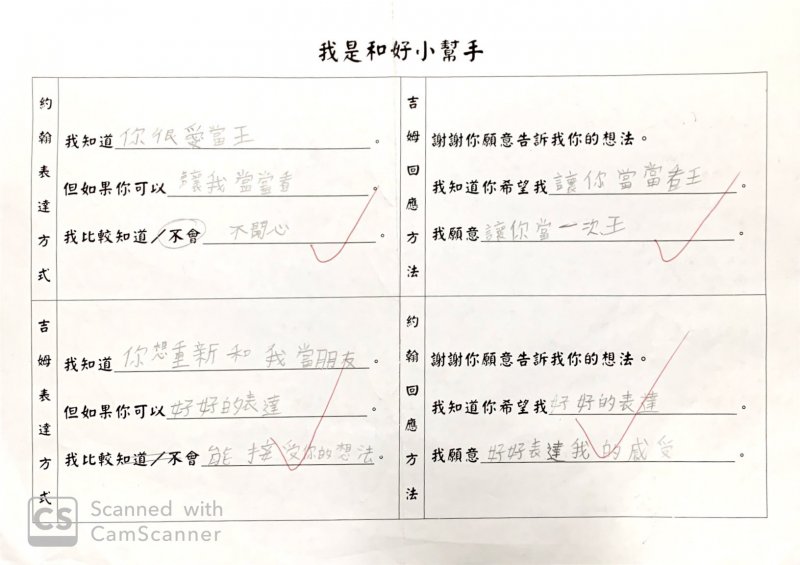 我是和好小幫手
約翰表達方式
我知道你很愛當王。
但如果你可以讓我當當看。
我比較知道/不會不開心。
吉姆回應方法
謝謝你願意告訴我你的想法。
我知道你希望我讓你當當看王。
我願意讓你當一次王。
吉姆表達方式
我知道你想重新和我當朋友。
但如果你可以好好的表達。
我比較知道/不會能接受你的想法。
約翰回應方法
謝謝你願意告訴我你的想法。
我知道你希望我好好的表達。
我願意好好表達我的感受。
CS Scanned with
CamScanner